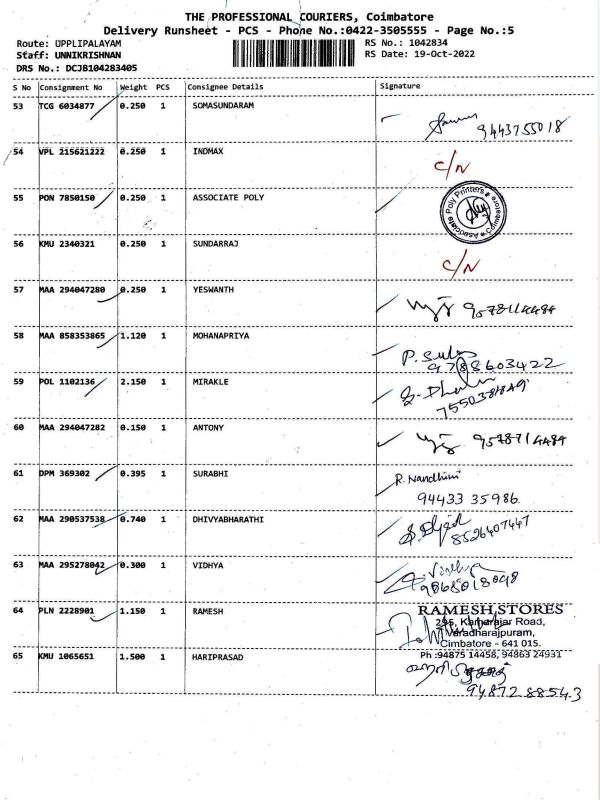 THE PROFESSIONAL COURIERS, Coimbatore
Delivery Runsheet - PCS - Phone No.:0422-3505555 - Page No.:5
Route: UPPLIPALAYAM RS No.: 1042834
Staff: UNNIKRISHNAN RS Date: 19-Oct-2022
DRS No.: DCJB104283405
S No Consignment No Weight PCS Consignee Details Signature
53 TCG 6034877 0.250 1 SOMASUNDARAM
9443755018
54 VPL 215621222 0.250 1 INDMAX C/N
55 PON 7850150 0.250 1 ASSOCIATE POLY
Associate Poly Printers Coimbatore
56 KMU 2340321 0.250 1 SUNDARRAJ C/N
57 MAA 294047280 0.250 1 YESWANTH
58 MAA 858353865 1.120 1 MOHANAPRIYA
9788603422
59 POL 1102136 2.150 1 MIRAKLE
60 MAA 294047282 0.150 1 ANTONY 9578714484
61 DPM 369302 0.395 1 SURABHI R. Nandhini
94433 35986
62 MAA 290537538 0.740 1 DHIVYABHARATHI
8526407447
63 MAA 295278042 0.300 1 VIDHYA
64 PLN 2228901 1.150 1 RAMESH RAMESH STORES
295, Kamarajar Road,
Varadharajpuram,
Cimbatore - 641 015.
65 KMU 1065651 1.500 1 HARIPRASAD Ph :94875 14458, 94863 24931
9487288543